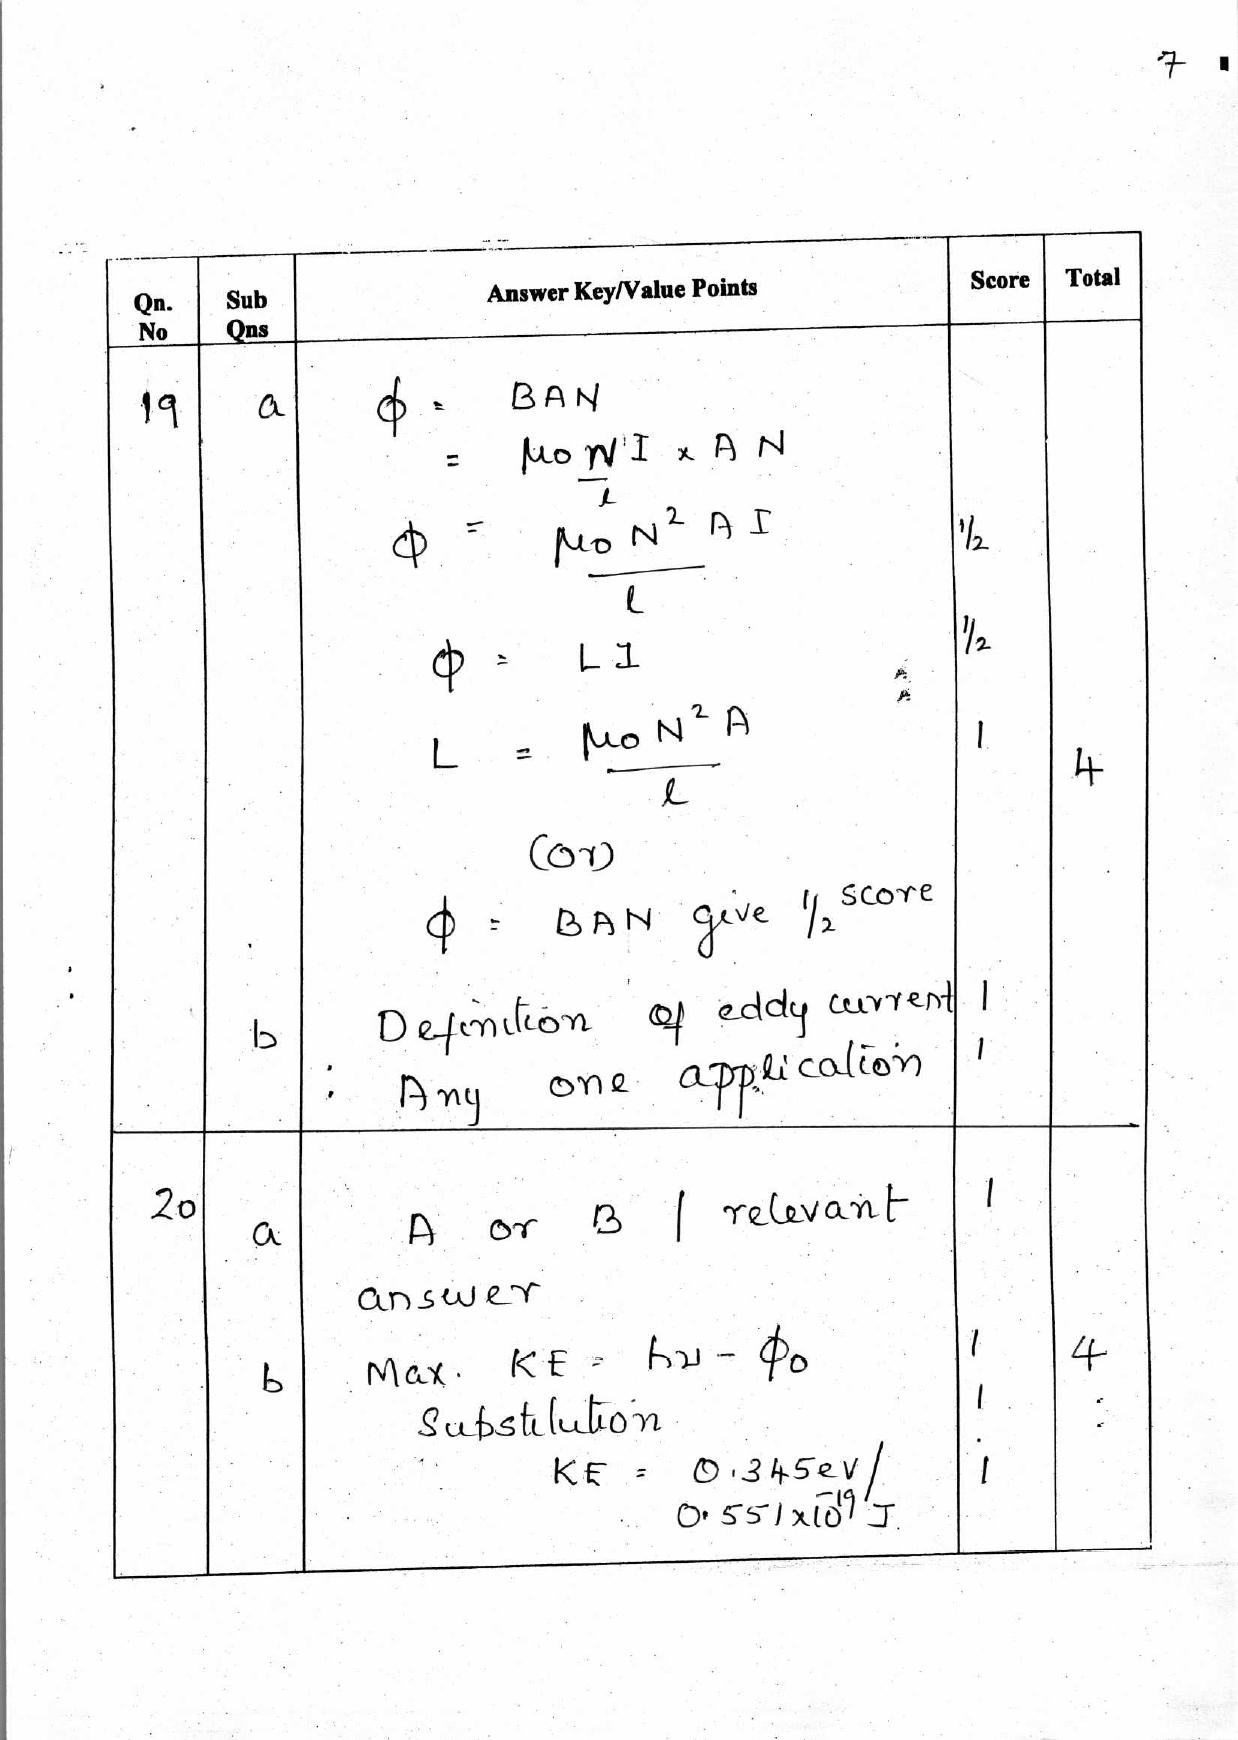 7
Qn. No
Sub Qns
Answer Key/Value Points
Score
Total
19 a ϕ = BAN
= μo N I x A N
l
ϕ = μo N² A I 1/2
l
ϕ = L I 1/2
L = μo N² A 1
l
4
(or)
ϕ = BAN give 1/2 score
b Definition of eddy current 1
Any one application 1
20 a A or B / relevant 1
answer
b Max. KE = hν - ϕo 1 4
Substitution 1
KE = 0.345ev/ 1
0.551x10⁻¹⁹ J.